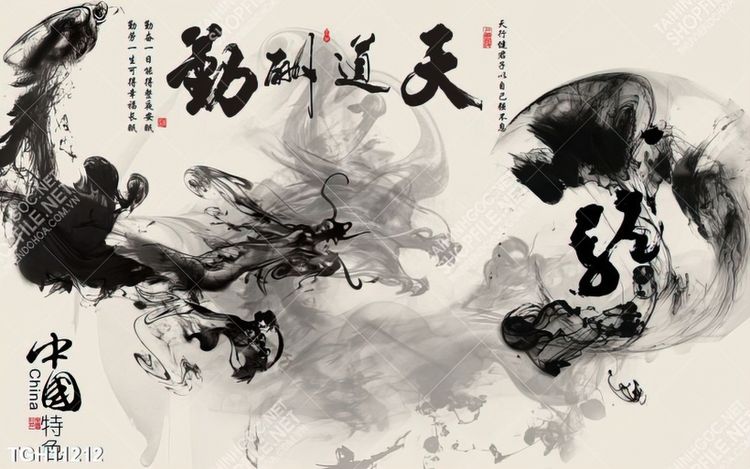 天道酬勤
天行健君子以自己强不息
勤奋一日能得整夜安眠
勤劳一生可得幸福长眠
中国
China
特色
TAIHINHGOC.NET
SHOPFILE.NET